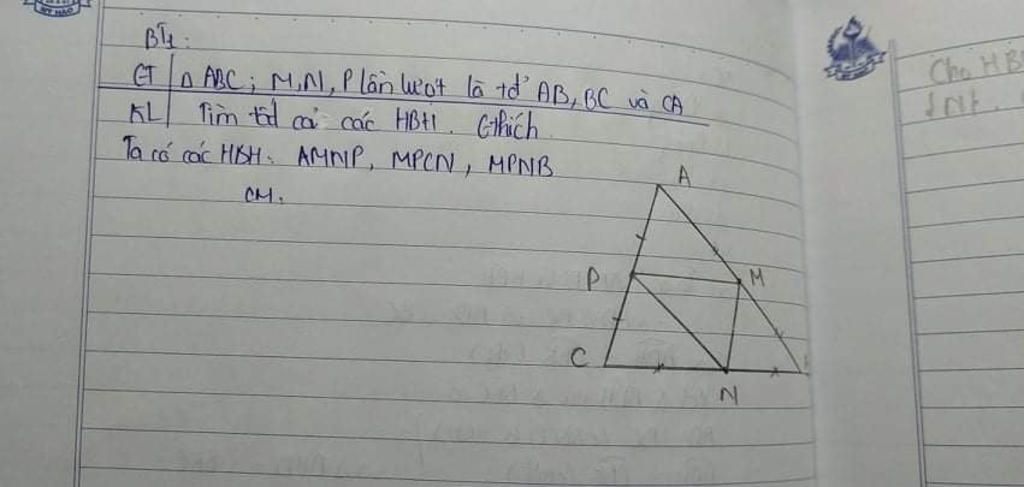 BT1:
GT | Δ ABC; M,N, P lần lượt là tđ' AB, BC và CA
KL | Tìm tất cả các HBH. Gthích
Ta có các HBH: AMNP, MPCN, MPNB
CM:
A
P
M
C
N
Cho HB